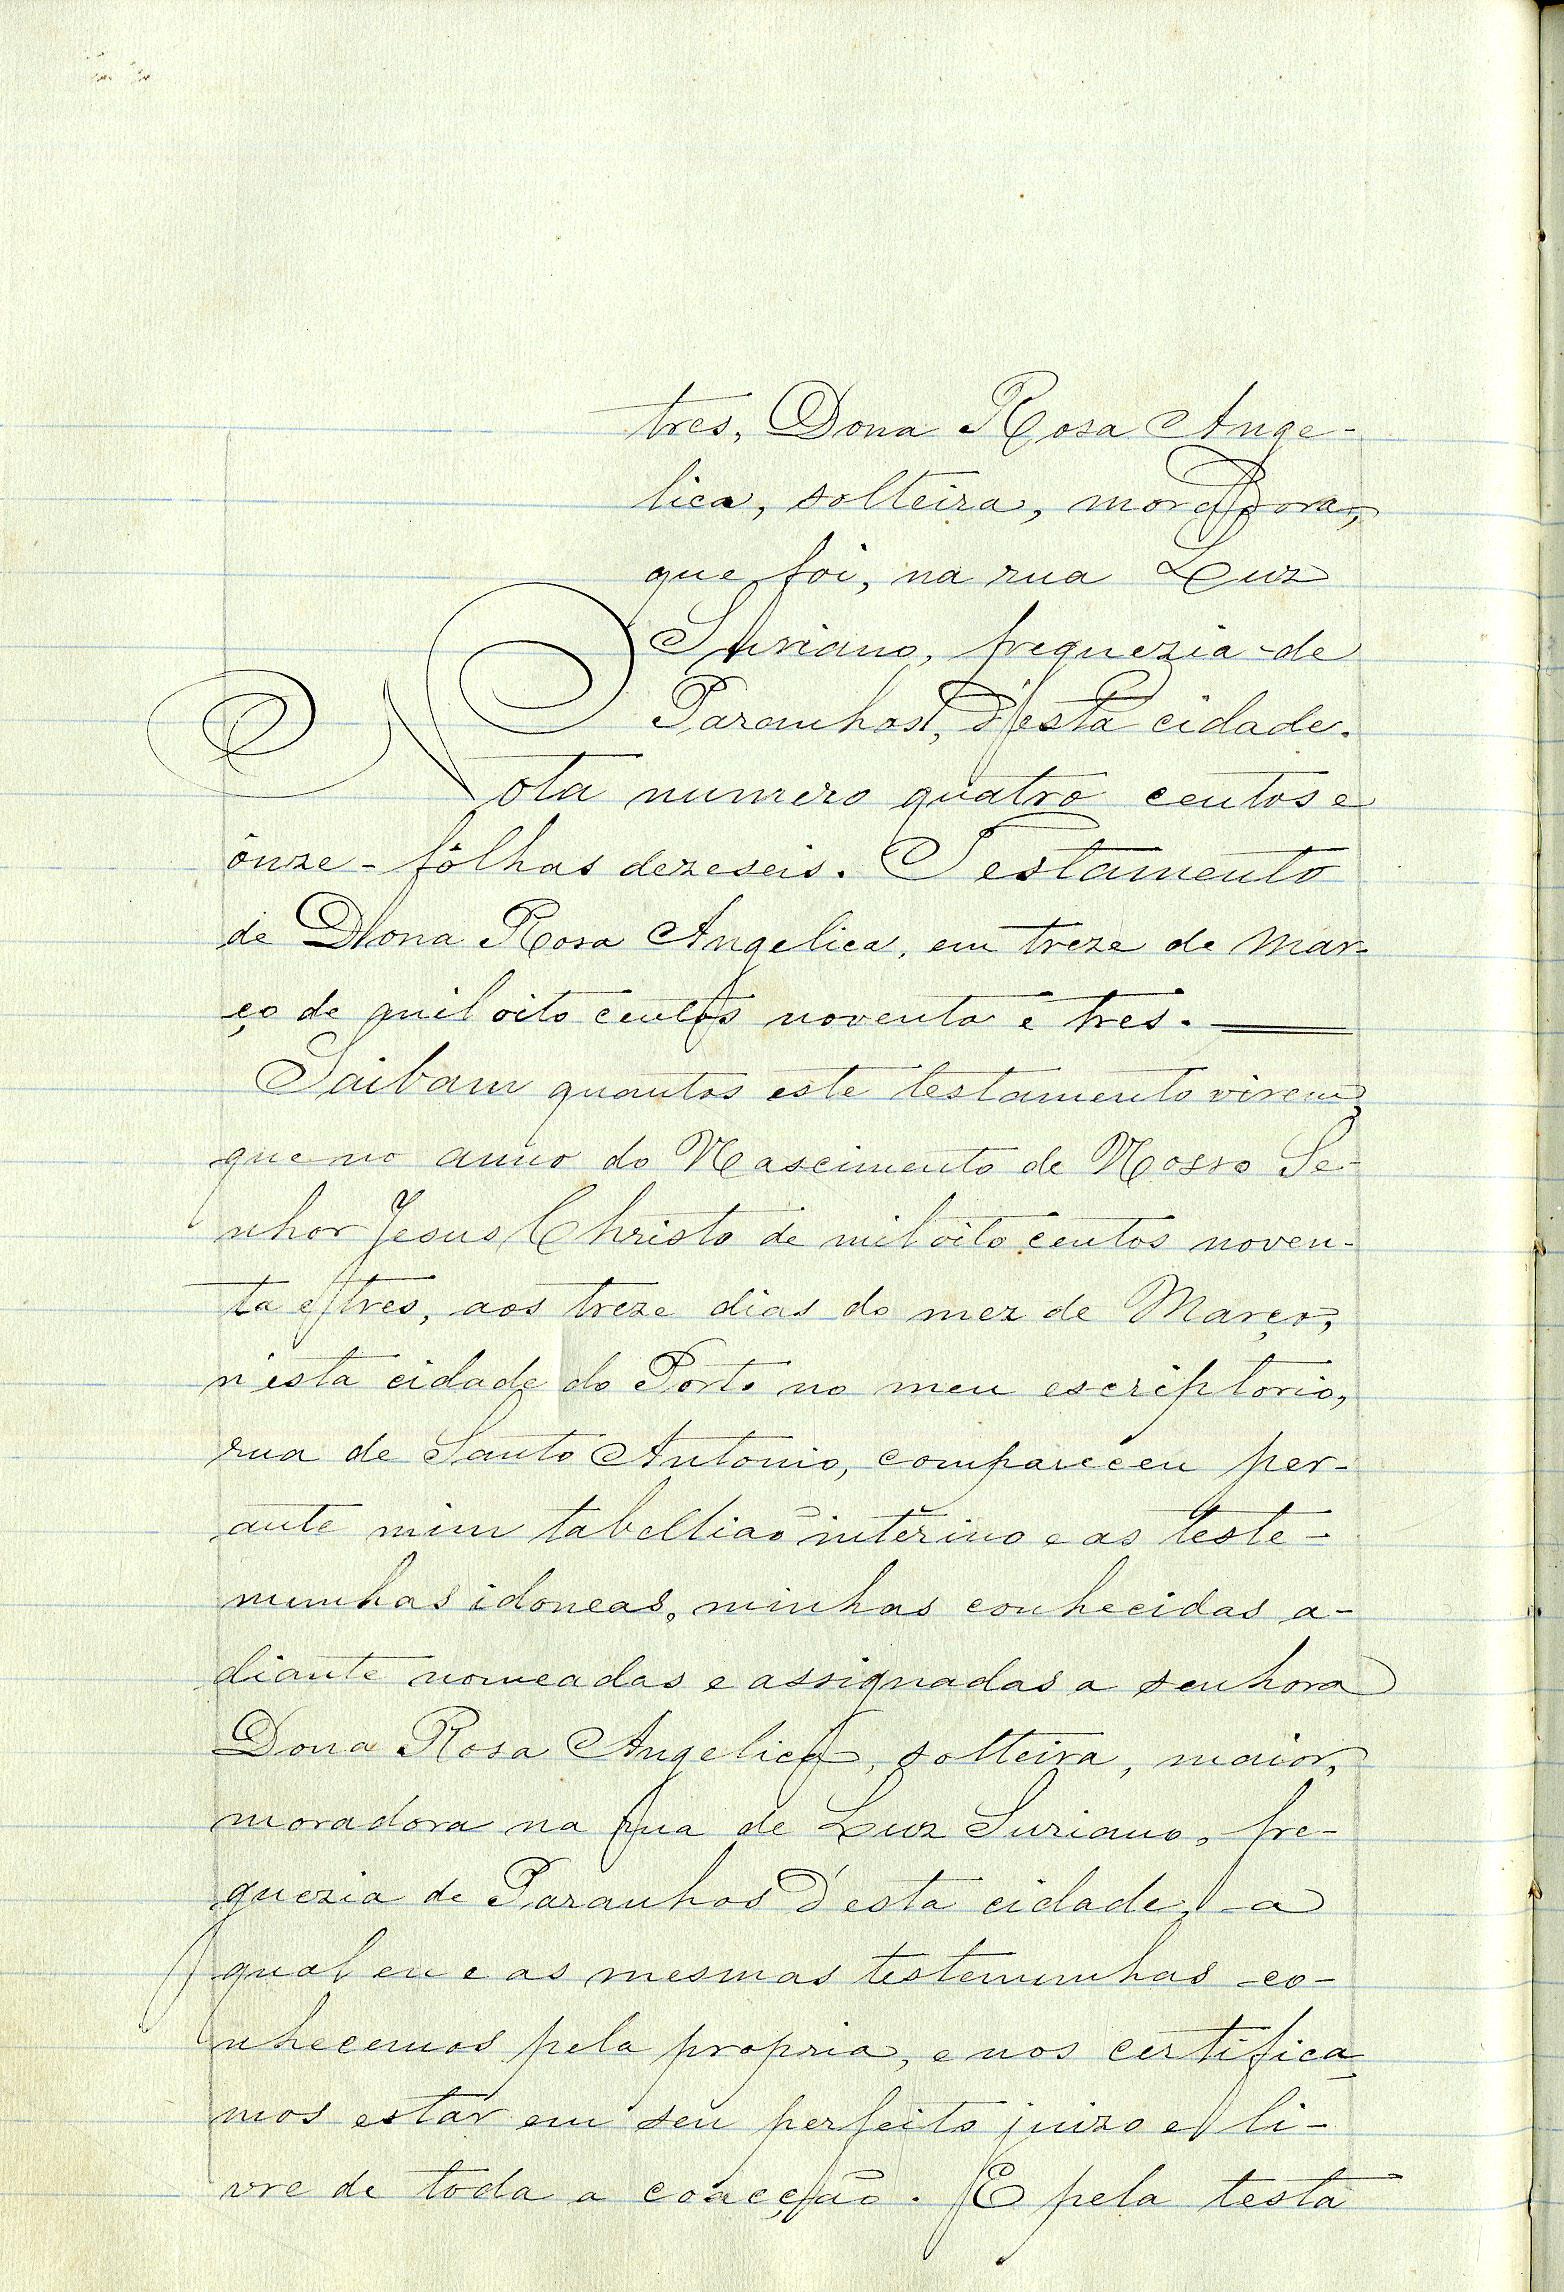 tres, Dona Rosa Ange-
lica, solteira, moradora,
que foi, na rua Luz
Suriano, freguezia de
Paranhos, d'esta cidade.
Nota numero quatro centos e
ônze - fôlhas dezeseis. Testamento
de Dona Rosa Angelica, em treze de Mar-
ço de mil oito centos noventa e tres.
Saibam quantos este testamento virem,
que no anno do Nascimento de Nosso Se-
nhor Jesus Christo de mil oito centos noven-
ta e tres, aos treze dias do mez de Março,
n'esta cidade do Porto no meu escriptorio,
rua de Santo Antonio, compareceu per-
ante mim tabellião interino e as teste-
munhas idoneas, minhas conhecidas a-
diante nomeadas e assignadas a senhora
Dona Rosa Angelica, solteira, maior,
moradora na rua de Luz Suriano, fre-
guezia de Paranhos d'esta cidade, a
qual eu e as mesmas testemunhas co-
nhecemos pela propria, e nos certifica-
mos estar em seu perfeito juizo e li-
vre de toda a coacção. E pela testa